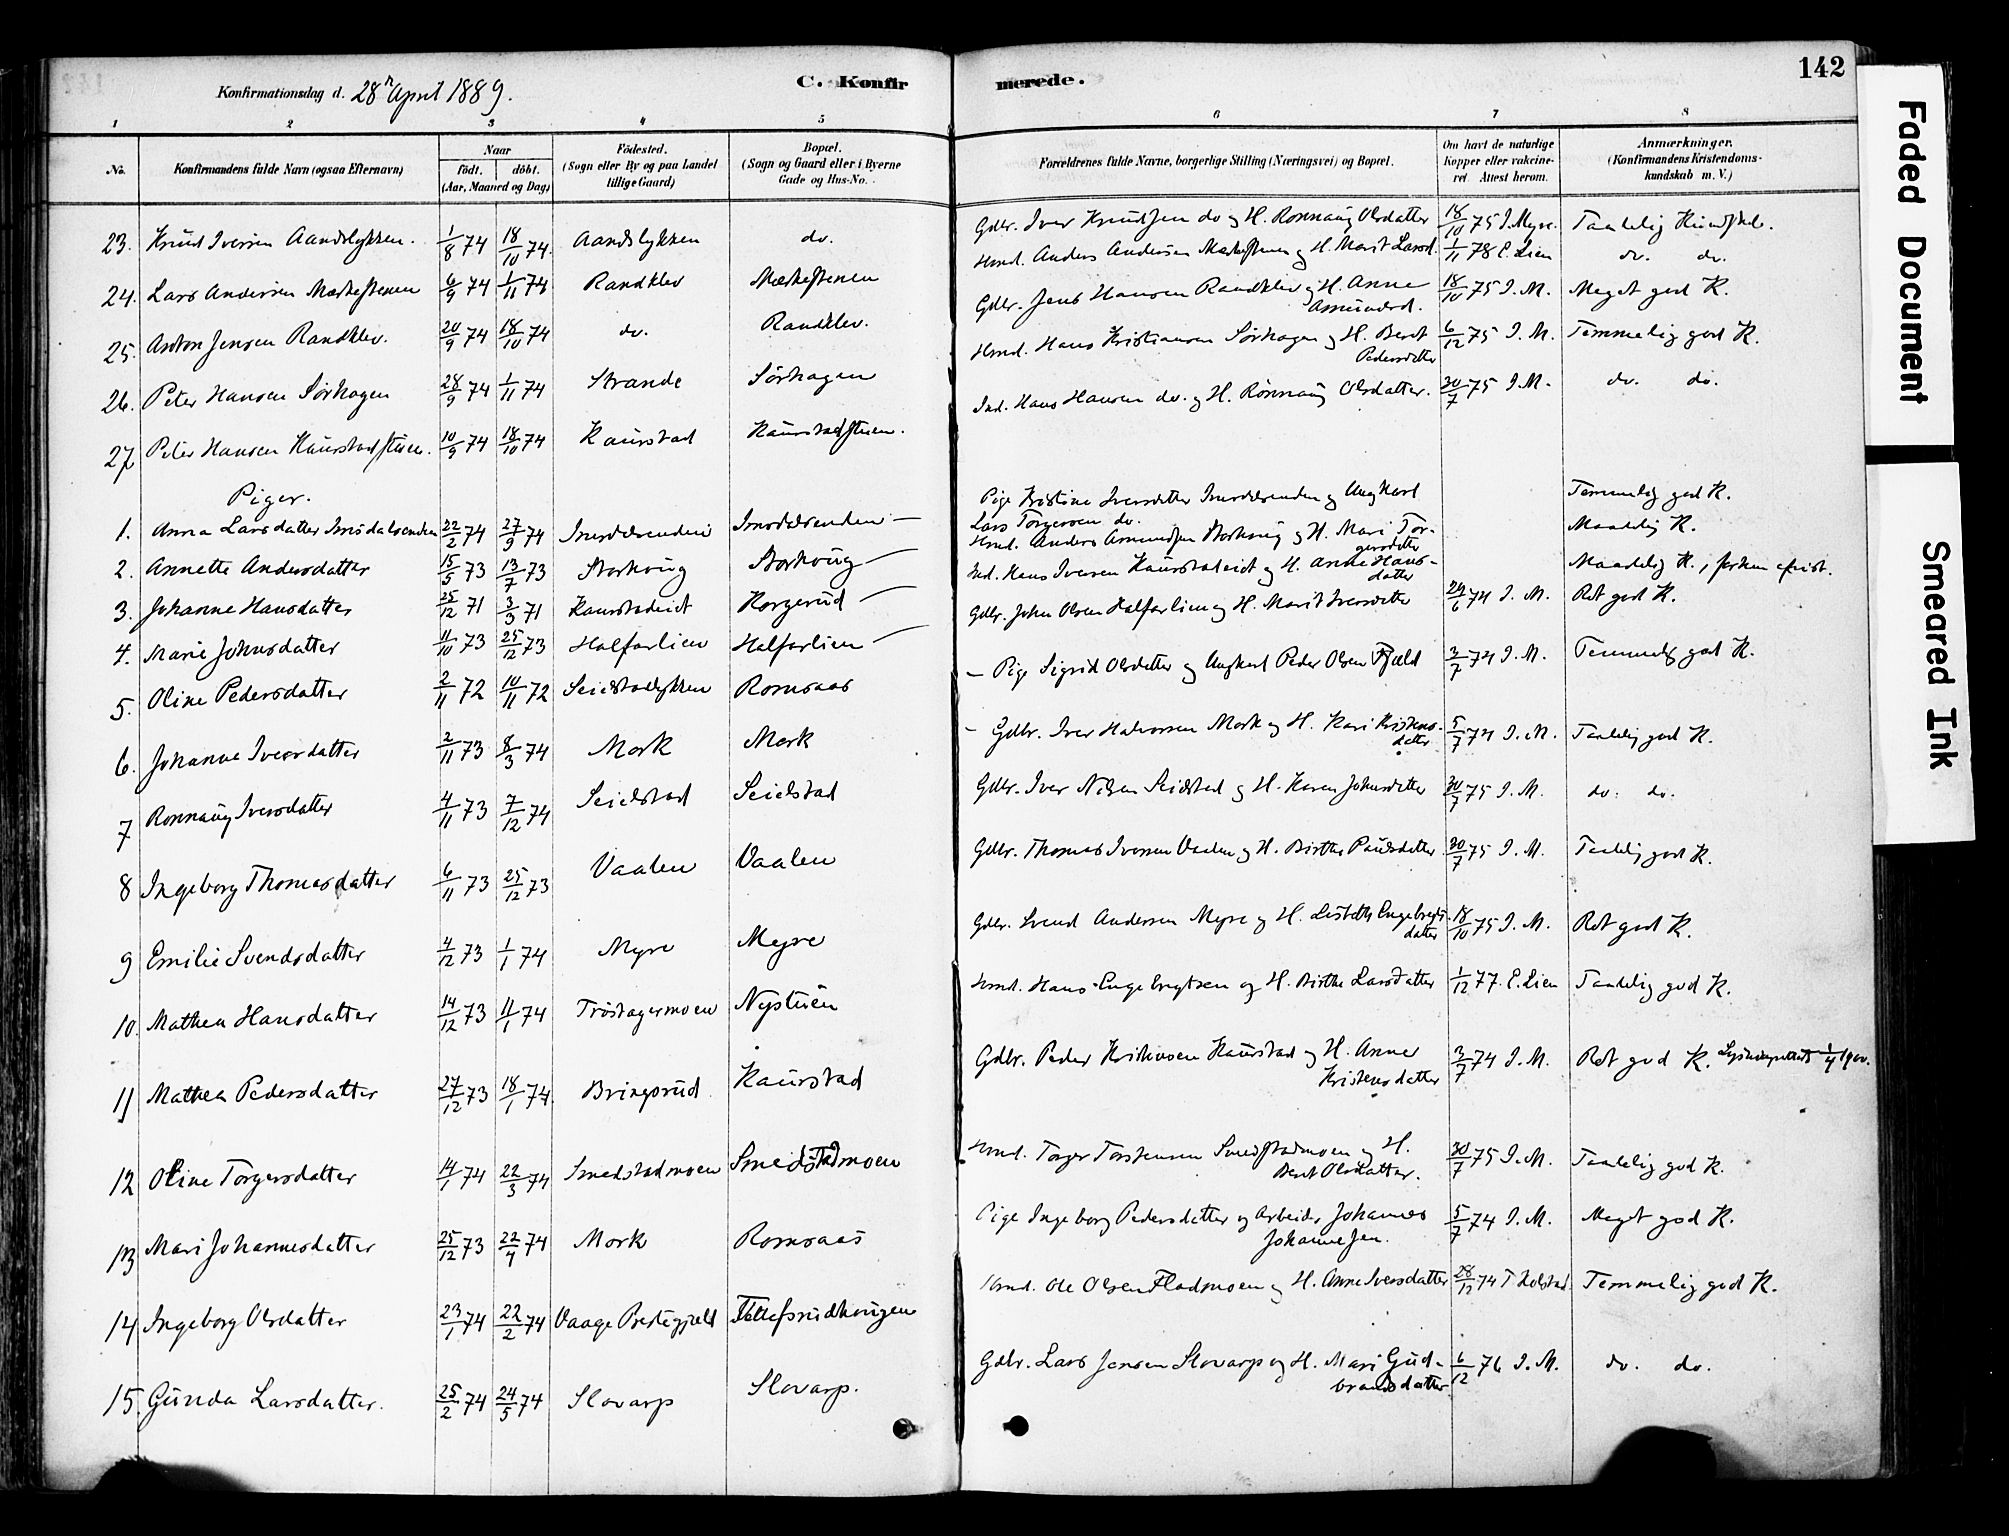 142
C. Konfirmerede.
Konfirmationsdag d. 28 April 1889.
1 2 3 4 5 6 7 8
No. Konfirmandens fulde Navn (ogsaa Efternavn) Naar födt. döbt. (Aar, Maaned og Dag) Födested. (Sogn eller By og paa Landet tillige Gaard) Bopæl. (Sogn og Gaard eller i Byerne Gade og Hus-No. Forældrenes fulde Navne, borgerlige Stilling (Næringsvei) og Bopæl. Om havt de naturlige Kopper eller vakcineret. Attest herom. Anmærkninger. (Konfirmandens Kristendomskundskab m. V.)
23. Knud Iversen Aandslykken. 1/8 74 18/10 74. Aandslykken do. Gdbr. Iver Knudsen do og H. Rønnaug Olsdatter 18/10 75 I. Myre. Taalelig Kundskab.
24. Lars Andersen Mærkestenen 6/9 74 1/11 74 Randklev Mærkestenen Hmd. Anders Andersen Mærkestenen og H. Marit Larsd. 1/11 78 E. Lien do. do.
25. Anton Jensen Randklev. 20/9 74 18/10 74 do. Randklev. Gdbr. Jens Hansen Randklev og H. Anne Amundsd. 18/10 75 I. M. Meget god K.
26. Peter Hansen Sörhagen 28/9 74 1/11 74 Strande Sörhagen Hmd. Hans Kristiansen Sörhagen og H. Beret Pedersdatter 6/12 75 I. M. Temmelig god K.
27 Peter Hansen Kaurstadstuen. 10/9 74 18/10 74 Kaurstad Kaurstadstuen. Ind. Hans Hansen do. og H. Rönnaug Olsdatter. 30/7 75 I. M. do. do.
Piger.
1. Anna Larsdatter Imsdalsenden 22/2 74 27/9 74 Imsdalsenden Imsdalsenden — Pige Kristine Iversdatter Imsdalsenden og Ungkarl Lars Torgersen do. Temmelig god K.
2. Annette Andersdatter 15/5 73 13/7 73 Storhoug Storhoug — Hmd. Anders Amundsen Storhoug og H. Mari Torgersdatter Maadelig K.
3. Johanne Hansdatter 25/12 71 3/3 71 Kaurstadeidt Korgerud — Ind. Hans Iversen Kaurstadeidt og H. Anne Hansdatter Maadelig K.,
4. Marie Johnsdatter 11/10 73 25/12 73 Halfarlien Halfarlien — Gdbr. John Olsen Halfarlien og H. Marit Iversdatter 24/6 74 I. M. Ret god K.
5. Oline Pedersdatter 2/11 72 10/11 72 Seielstadlykken Romsaas — Pige Sigrid Olsdatter og Ungkarl Peder Olsen Fjeld 3/7 74 I. M. Temmelig god K.
6. Johanne Iversdatter 2/11 73 8/3 74 Mork Mork – Gdbr. Iver Halvorsen Mork og H. Kari Kristensdatter 5/7 74 I. M. Taalelig god K.
7 Rønnaug Iversdatter 4/11 73 7/12 74 Seielstad Seielstad Gdbr. Iver Nilsen Seielstad og H. Karen Johnsdatter 30/7 75 I. M. do. do.
8 Ingeborg Thomasdatter 6/11 73 25/12 73 Vaalen Vaalen Gdbr. Thomas Iversen Vaalen og H. Birthe Paulsdatter 30/7 75 I. M. Taalelig god K.
9 Emilie Svendsdatter 4/12 73 1/1 74 Myre Myre Gdbr. Svend Andersen Myre og H. Lisbeth Engebretsdatter 18/10 75 I. M. Ret god K.
10. Mathea Hansdatter 14/12 73 11/1 74 Tröstagermoen Nystuen Hmd. Hans Engebrigtsen og H. Birthe Larsdatter 1/12 77. E. Lien Taalelig god K.
11 Mathea Pedersdatter 27/12 73 18/1 74 Bringsrud Kaurstad Gdbr. Peder Kristensen Kaurstad og H. Anne Kristensdatter 3/7 74 I. M. Ret god K.
12 Oline Torgersdatter 14/1 74 22/3 74 Smedstadmoen Smedstadmoen Hmd. Torger Torstensen Smedstadmoen og H. Berit Olsdatter. 30/7 75 I. M. Taalelig god K.
13 Mari Johannesdatter 25/12 73 22/4 74 Mork Romsaas Pige Ingeborg Pedersdatter og Arbeider Johannes Johannesen. 5/7 74 I. M. Meget god K.
14 Ingeborg Olsdatter 23/1 74 22/2 74 Vaage Prestegjeld Hmd. Ole Olsen Fladmoen og H. Anne Iversdatter 28/12 74 Temmelig god K.
15. Gunda Larsdatter. 25/2 74 24/5 74 Slovarp Slovarp. Gdbr. Lars Jensen Slovarp og H. Mari Gudbrandsdatter 6/12 76 I. M. do. do.
Faded Document
Smeared Ink